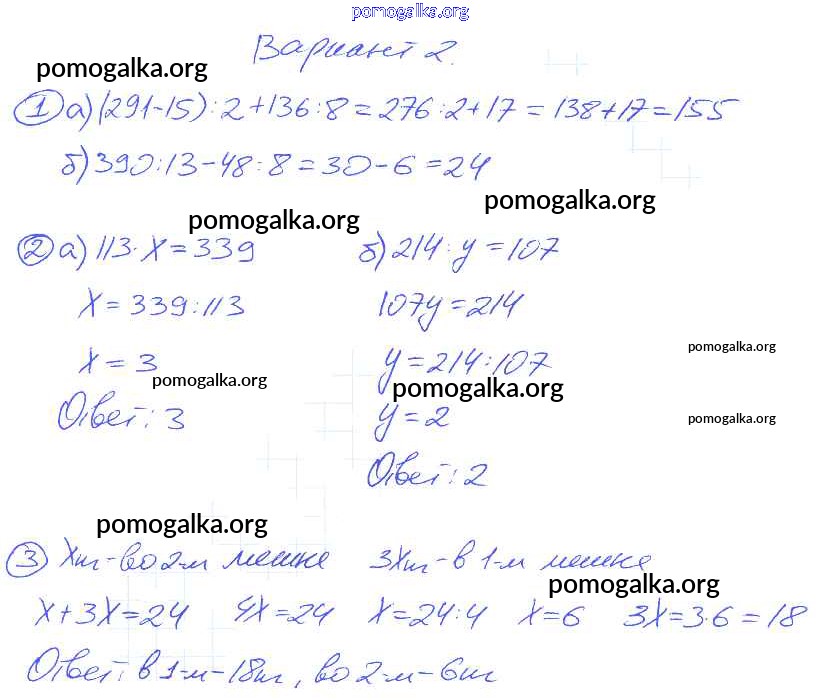 pomogalka.org
Вариант 2.
pomogalka.org
① а) (291-15):2+136:8=276:2+17=138+17=155
б) 390:13-48:8=30-6=24
pomogalka.org
pomogalka.org
② а) 113·x=339 б) 214:y=107
x=339:113 107y=214
pomogalka.org
x=3 y=214:107
pomogalka.org pomogalka.org
Ответ: 3 y=2
pomogalka.org
Ответ: 2
pomogalka.org
③ xш-во 2-м мешке 3xш-в 1-м мешке
pomogalka.org
x+3x=24 4x=24 x=24:4 x=6 3x=3·6=18
Ответ: в 1-м-18ш, во 2-м-6ш